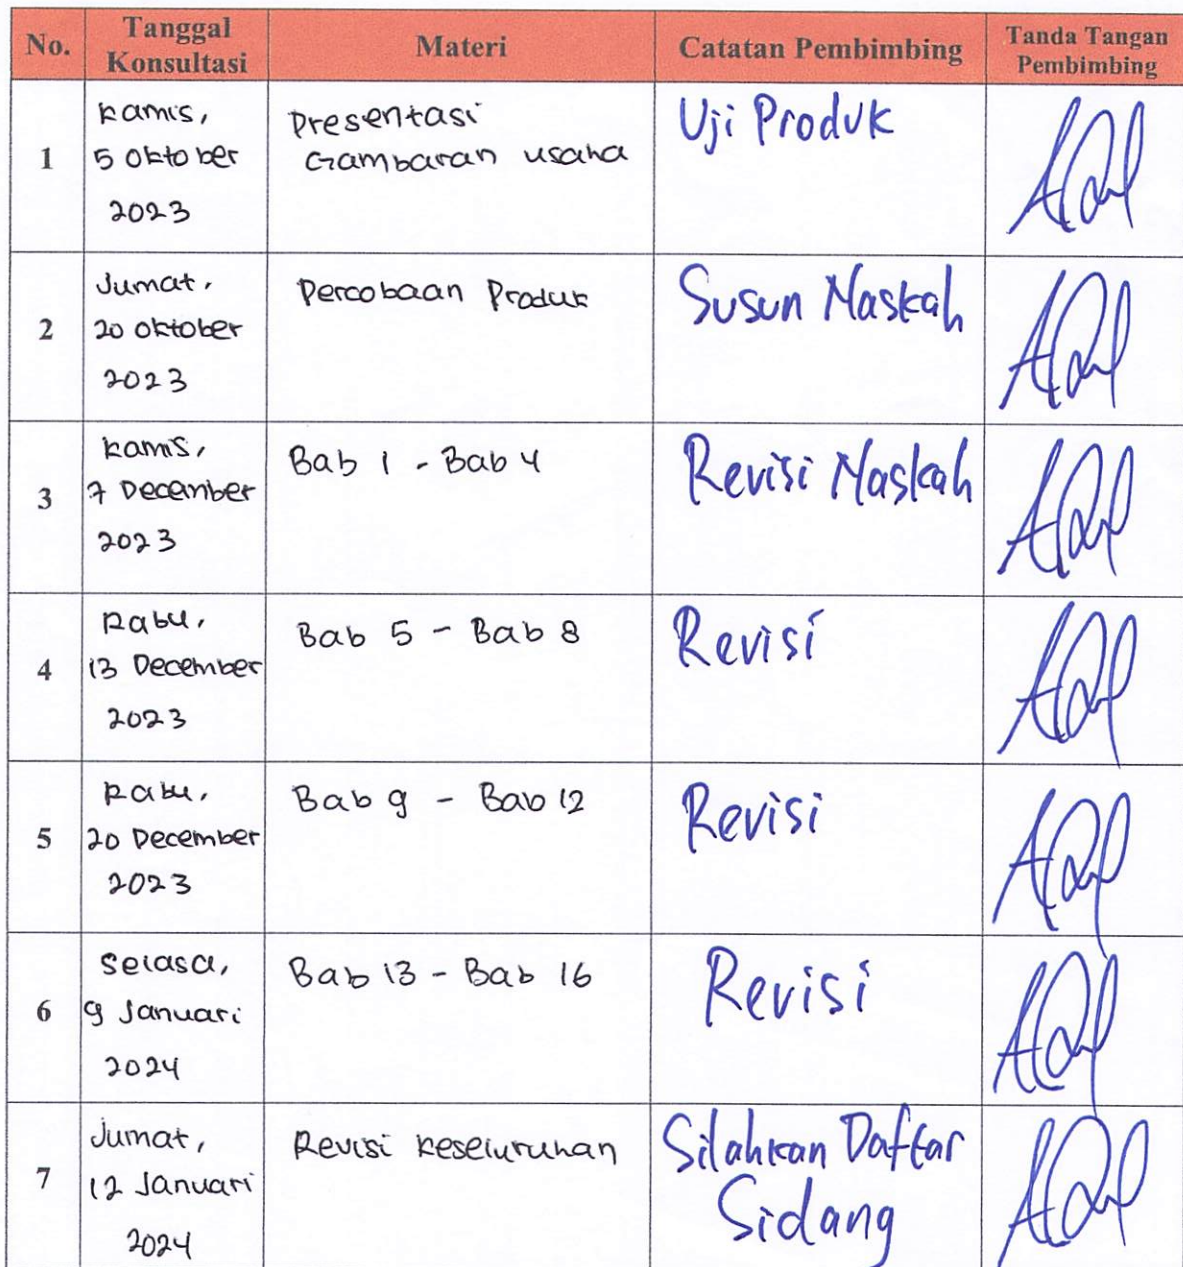 No.
Tanggal
Konsultasi
Materi
Catatan Pembimbing
Tanda Tangan
Pembimbing
1
Kamis,
5 Oktober
2023
Presentasi
Gambaran usaha
Uji Produk
2
Jumat,
20 Oktober
2023
Percobaan Produk
Susun Naskah
3
Kamis,
7 December
2023
Bab 1 - Bab 4
Revisi Naskah
4
Rabu,
13 December
2023
Bab 5 - Bab 8
Revisi
5
Rabu,
20 December
2023
Bab 9 - Bab 12
Revisi
6
Selasa,
9 Januari
2024
Bab 13 - Bab 16
Revisi
7
Jumat,
12 Januari
2024
Revisi keseluruhan
Silahkan Daftar
Sidang